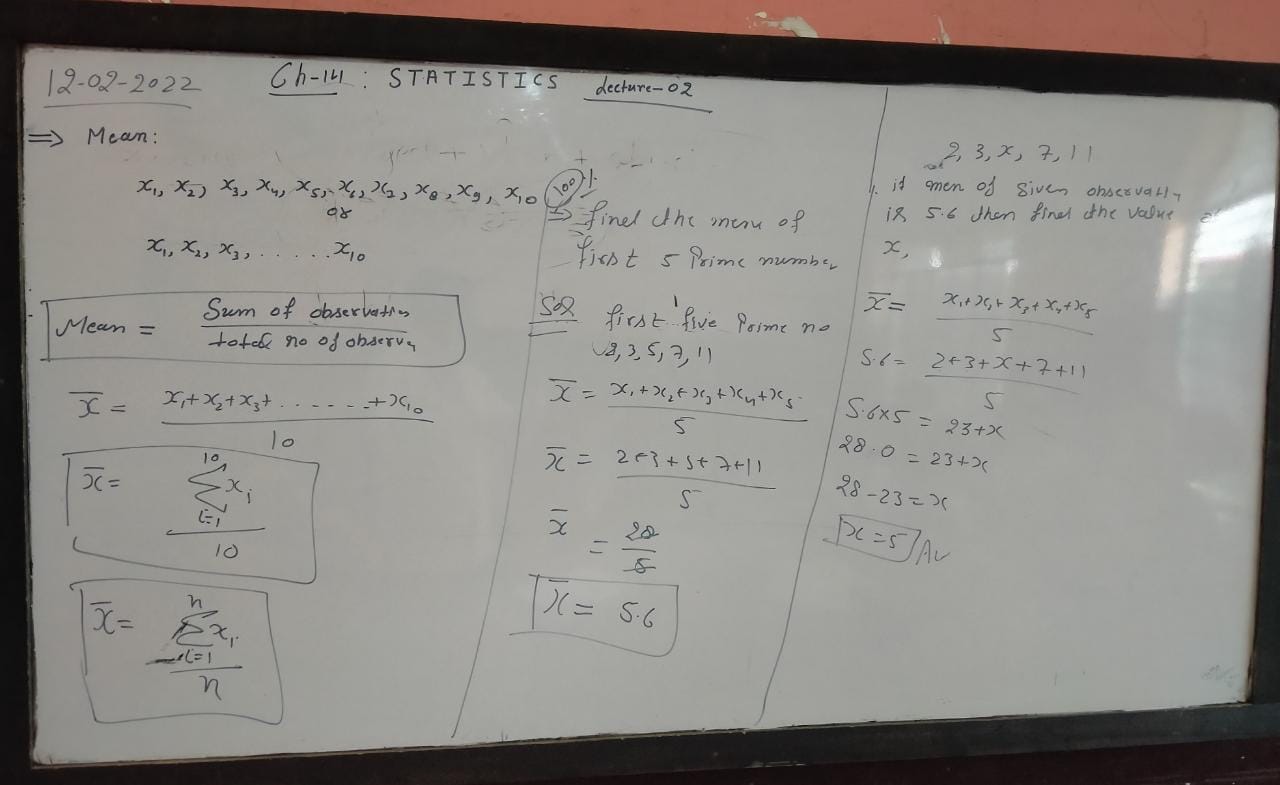 12-02-2022
Ch-14 : STATISTICS Lecture-02
⇒ Mean:
x₁, x₂, x₃, x₄, x₅, x₆, x₇, x₈, x₉, x₁₀
or
x₁, x₂, x₃, ...... x₁₀
Mean = Sum of observatin / total no of observn
x̄ = x₁+x₂+x₃+ ...... +x₁₀ / 10
x̄ = 10 Σ i=1 xᵢ / 10
x̄ = n Σ i=1 xᵢ / n
100%
⇒ find the menu of
first 5 Prime number
Sol first five Prime no
2, 3, 5, 7, 11
x̄ = x₁+x₂+x₃+x₄+x₅ / 5
x̄ = 2+3+5+7+11 / 5
x̄ = 28 / 5
x̄ = 5.6
2, 3, x, 7, 11
if men of given observatin
is 5.6 then find the value of
x,
x̄ = x₁+x₂+x₃+x₄+x₅ / 5
5.6 = 2+3+x+7+11 / 5
5.6x5 = 23+x
28.0 = 23+x
28-23 = x
x = 5